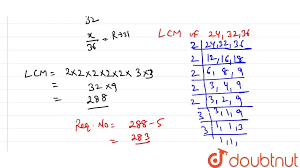 32
x/36 → R→31
LCM = 2×2×2×2×2×3×3
= 32×9
= 288
Req. No = 288-5
= 283
LCM of 24, 32, 36
2 | 24, 32, 36
2 | 12, 16, 18
2 | 6, 8, 9
2 | 3, 4, 9
2 | 3, 2, 9
3 | 3, 1, 9
3 | 1, 1, 3
1, 1,